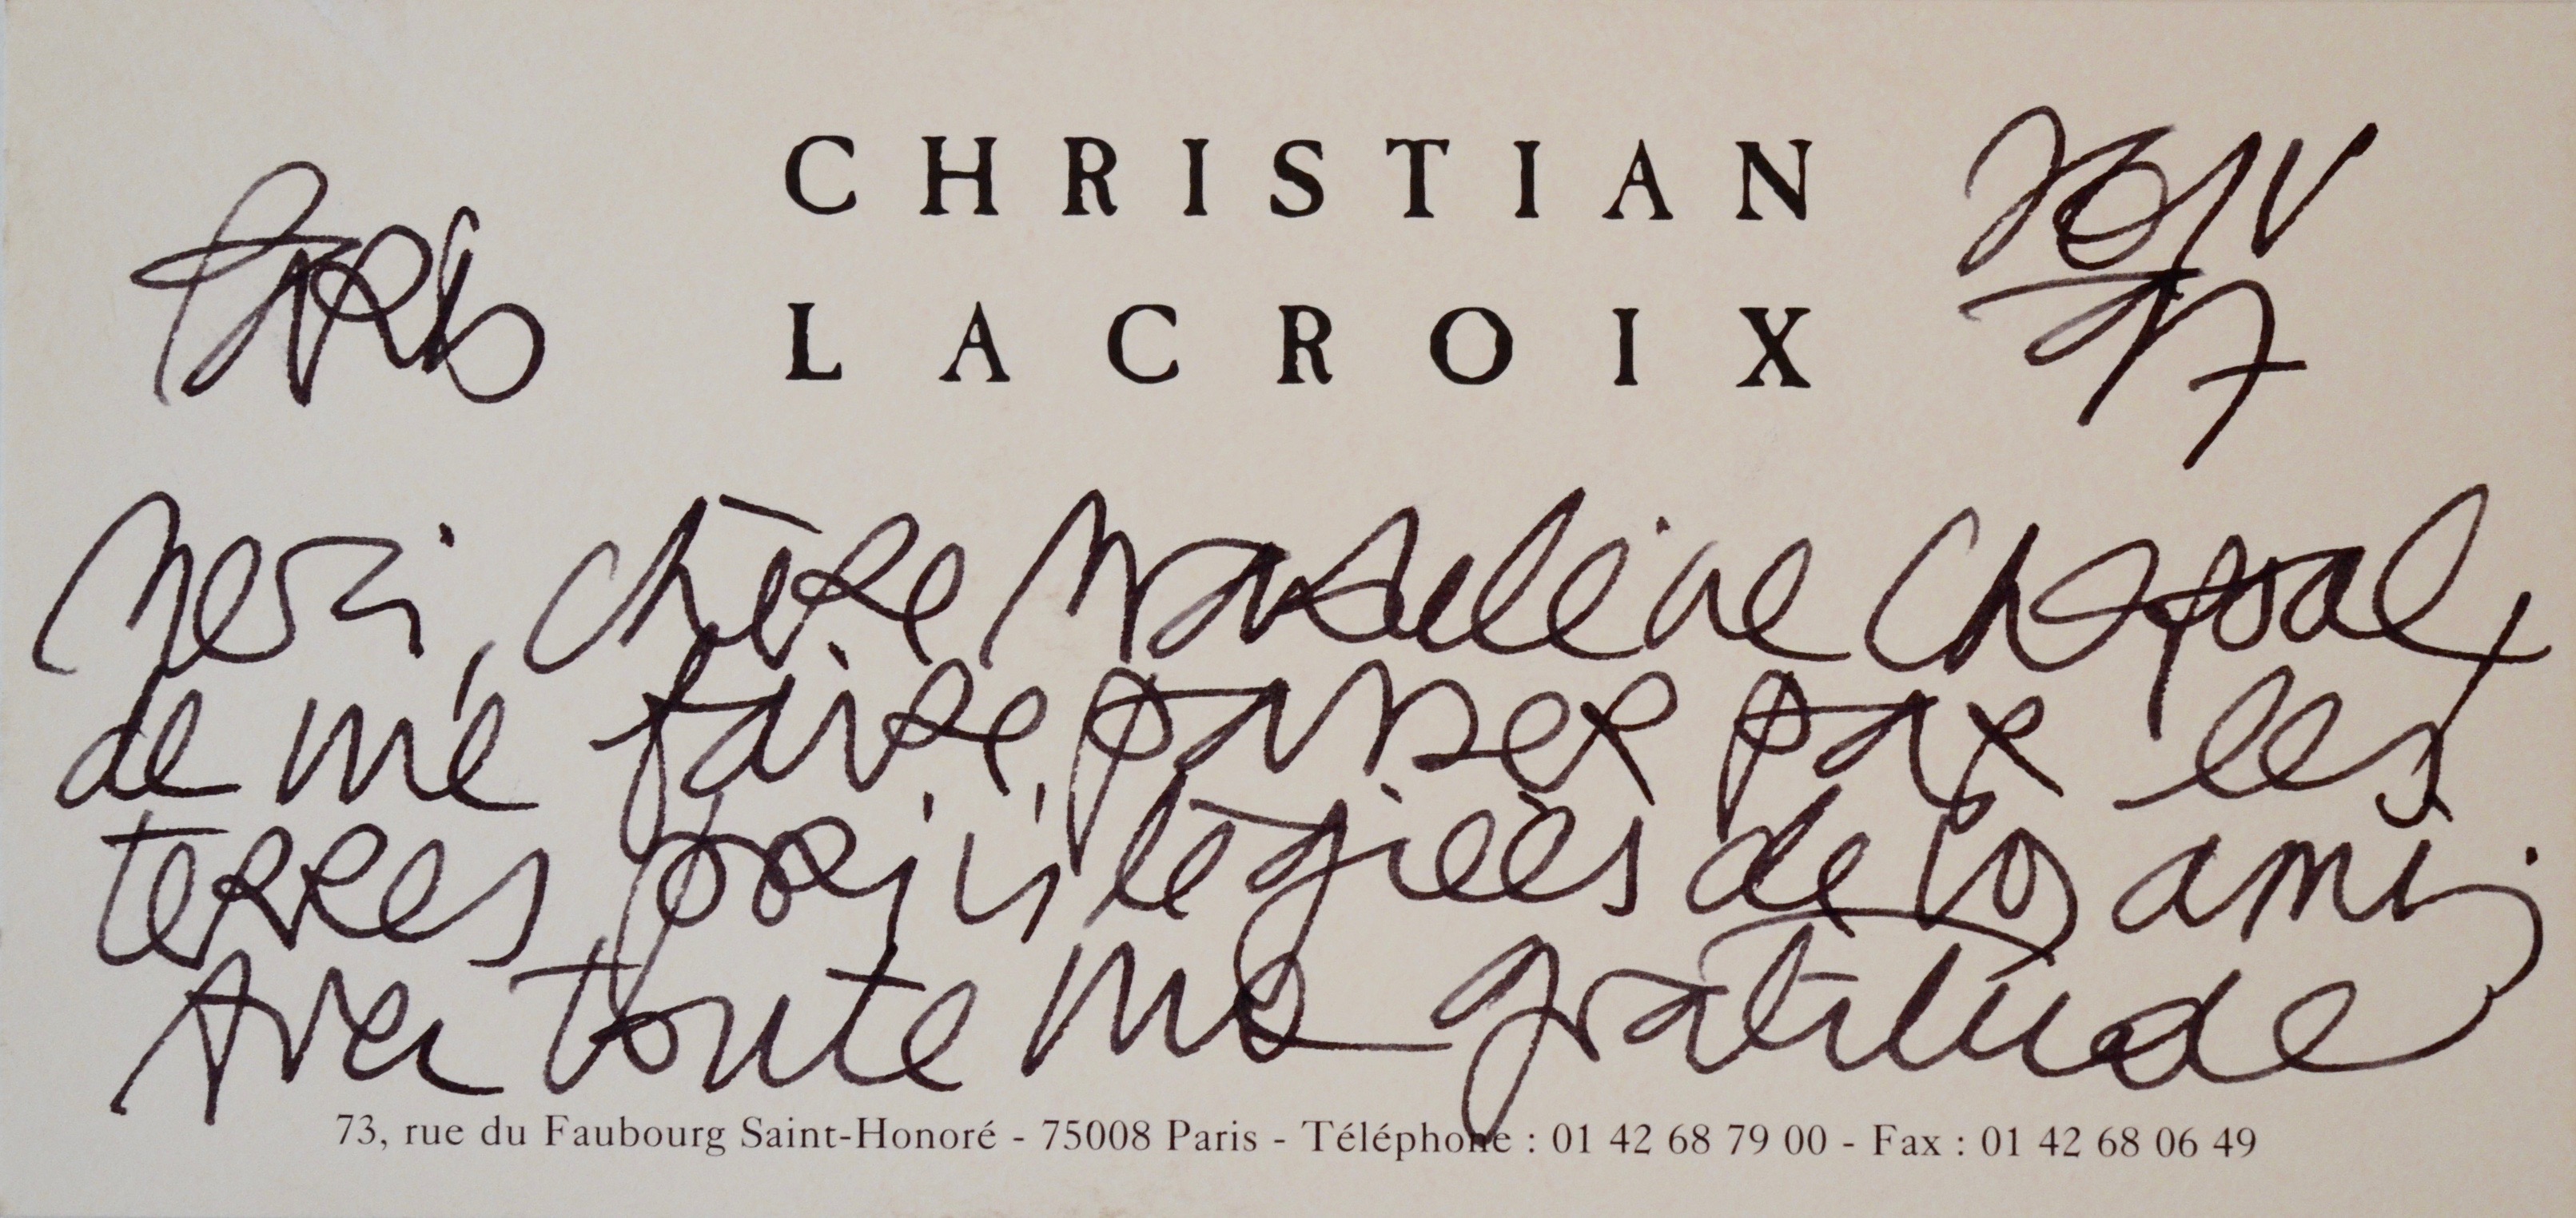 CHRISTIAN
LACROIX
Paris
97
Merci, chère Madeleine Chapsal,
de me faire passer par les
terres privilégiées de vos amis.
Avec toute ma gratitude
73, rue du Faubourg Saint-Honoré - 75008 Paris - Téléphone : 01 42 68 79 00 - Fax : 01 42 68 06 49